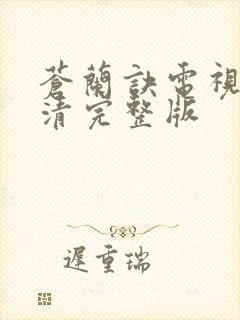 蒼蘭訣電視
清完整版
遲重瑞